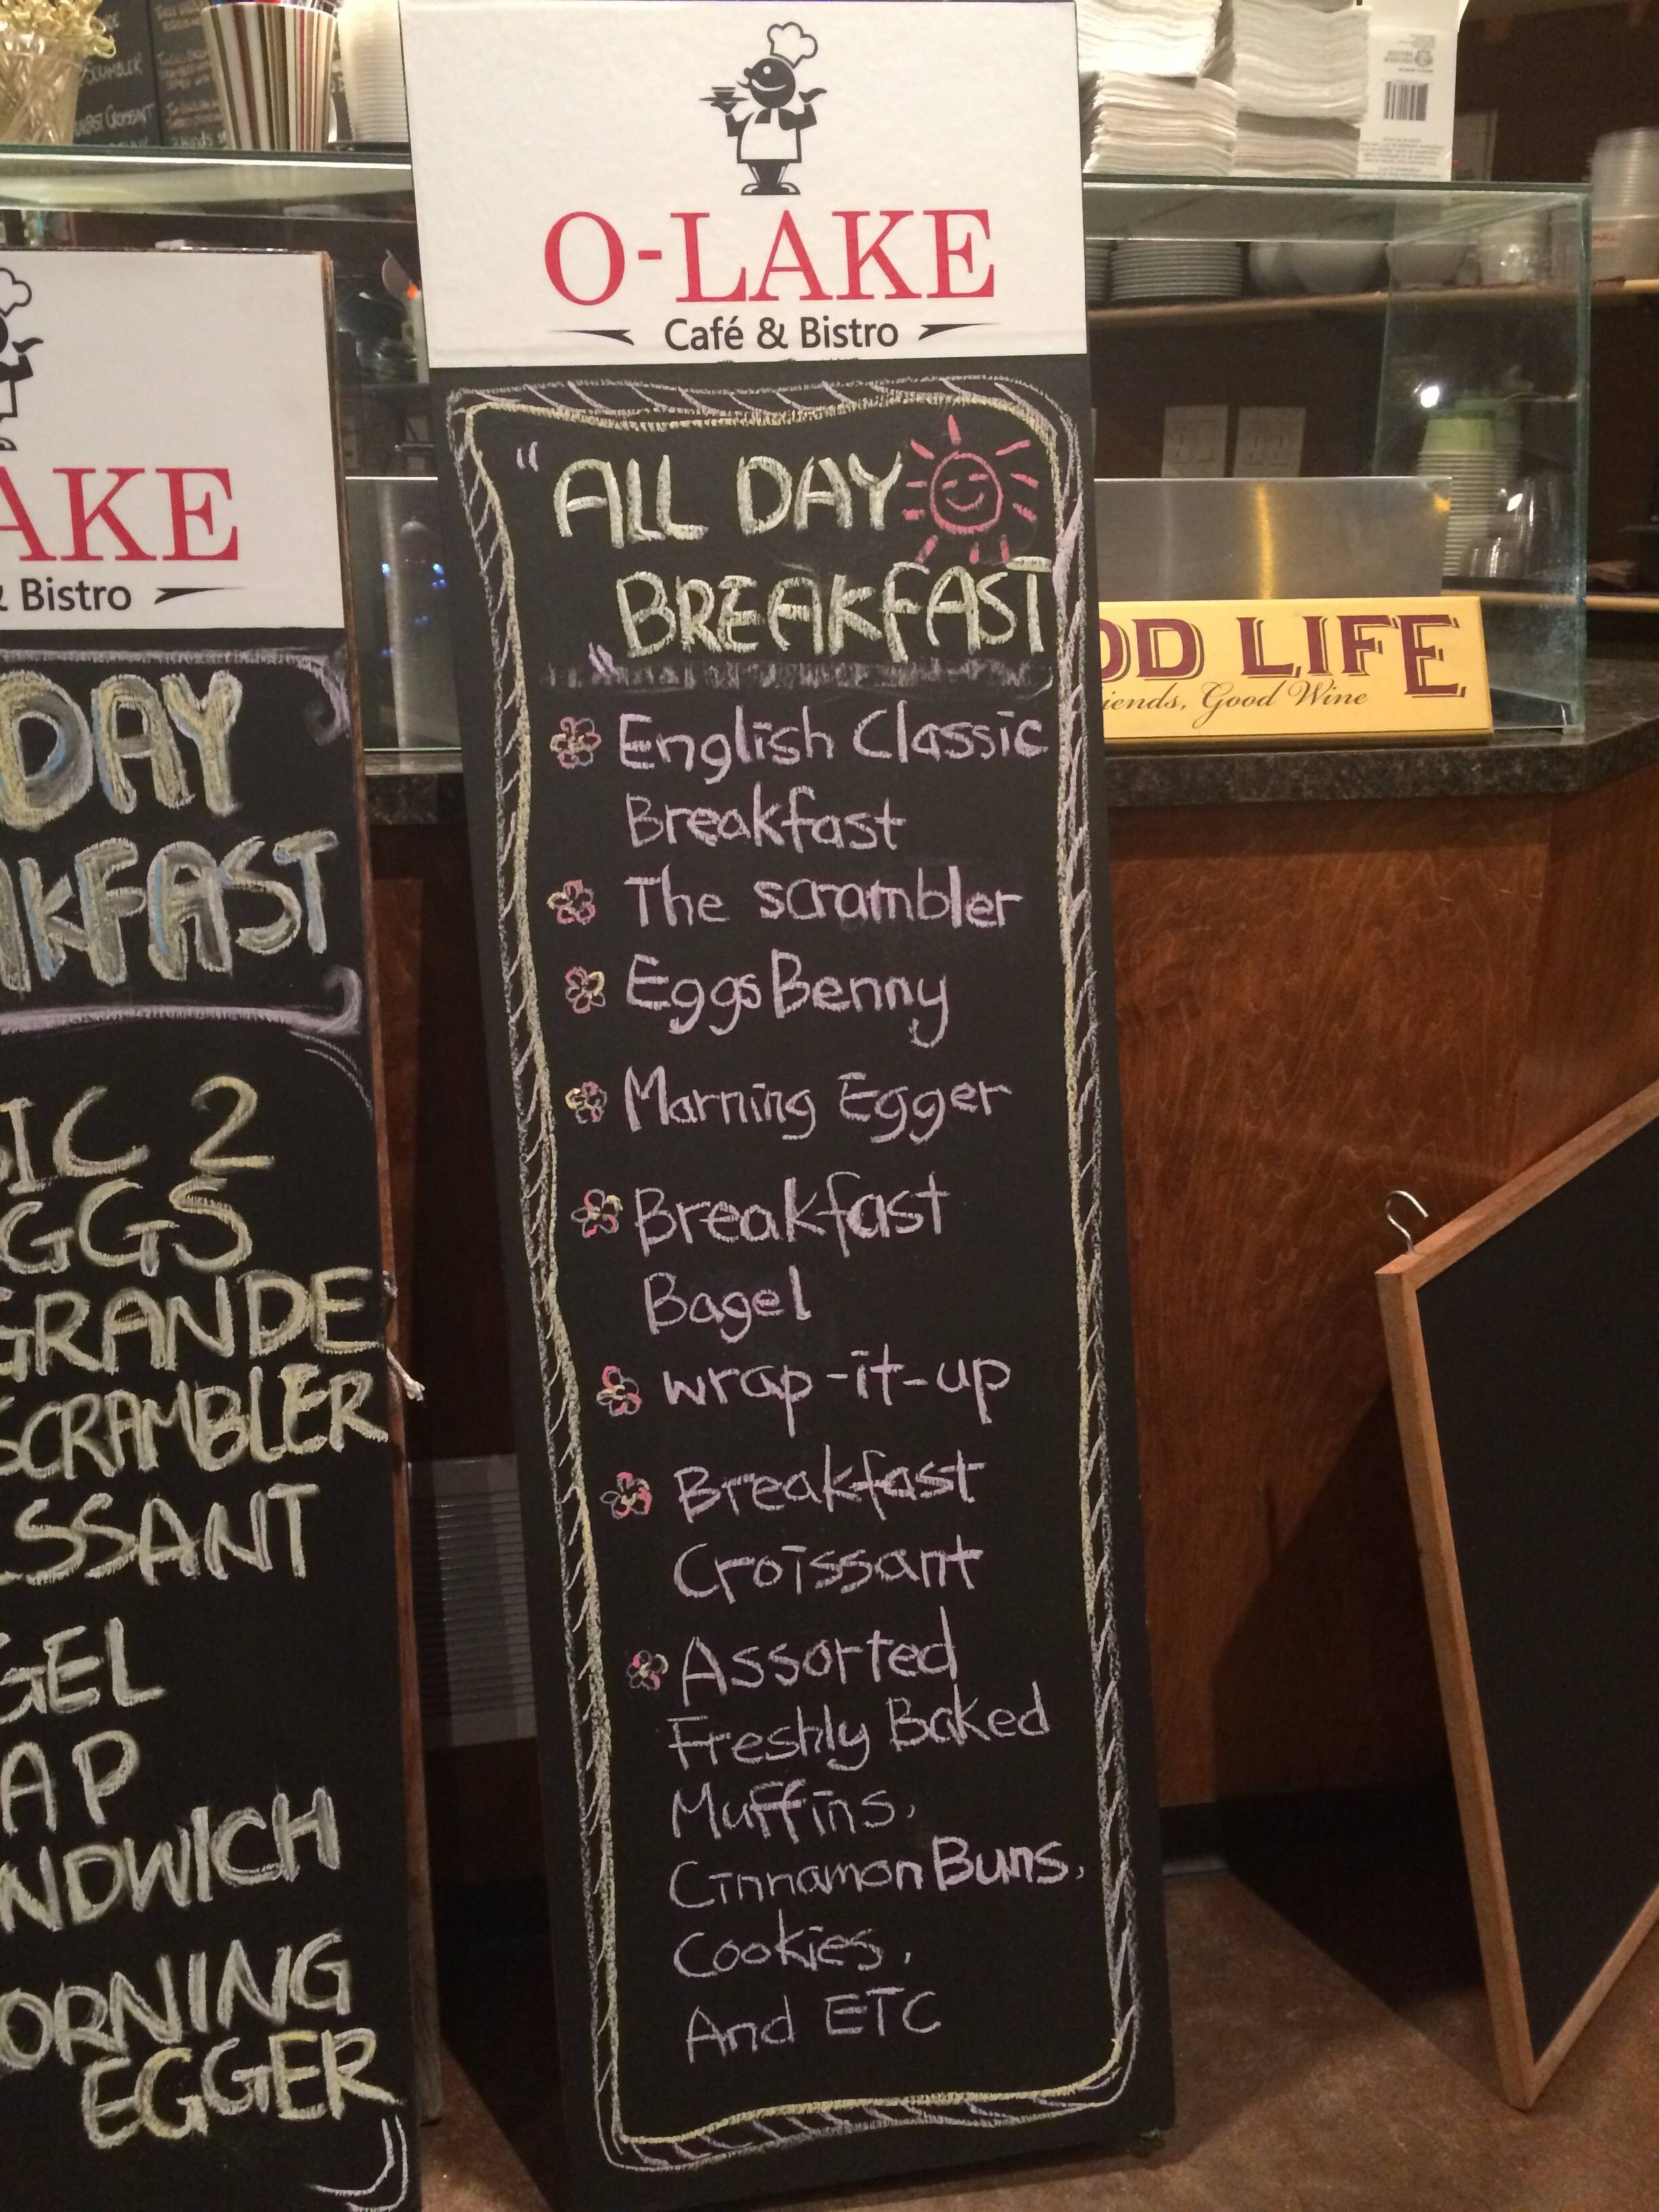 O-LAKE
Café & Bistro
"ALL DAY
BREAKFAST"
English Classic
Breakfast
The scrambler
Eggs Benny
Marning Egger
Breakfast
Bagel
wrap-it-up
Breakfast
Croissant
Assorted
Freshly Baked
Muffins,
Cinnamon Buns,
Cookies,
And ETC
AKE
& Bistro
DAY
AKFAST
SIC 2
GGS
GRANDE
SCRAMBLER
ISSANT
GEL
AP
NDWICH
ORNING
EGGER
OD LIFE
iends, Good Wine
SCRAMBLER